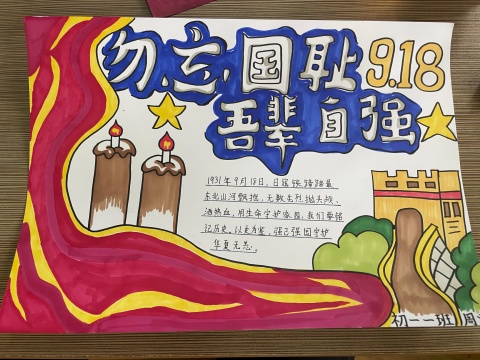 勿忘国耻 9.18
吾辈自强
1931年9月18日，日寇铁蹄踏蓝
东北山河飘摇，无数先烈抛头颅、
洒热血，用生命守护家园。我们要铭
记历史，以史为鉴，强己强国守护
华夏无恙。
初一一班 周